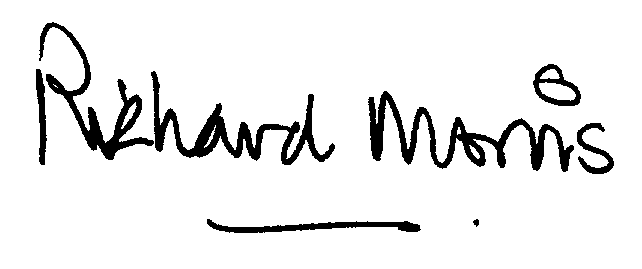 Richard Morris